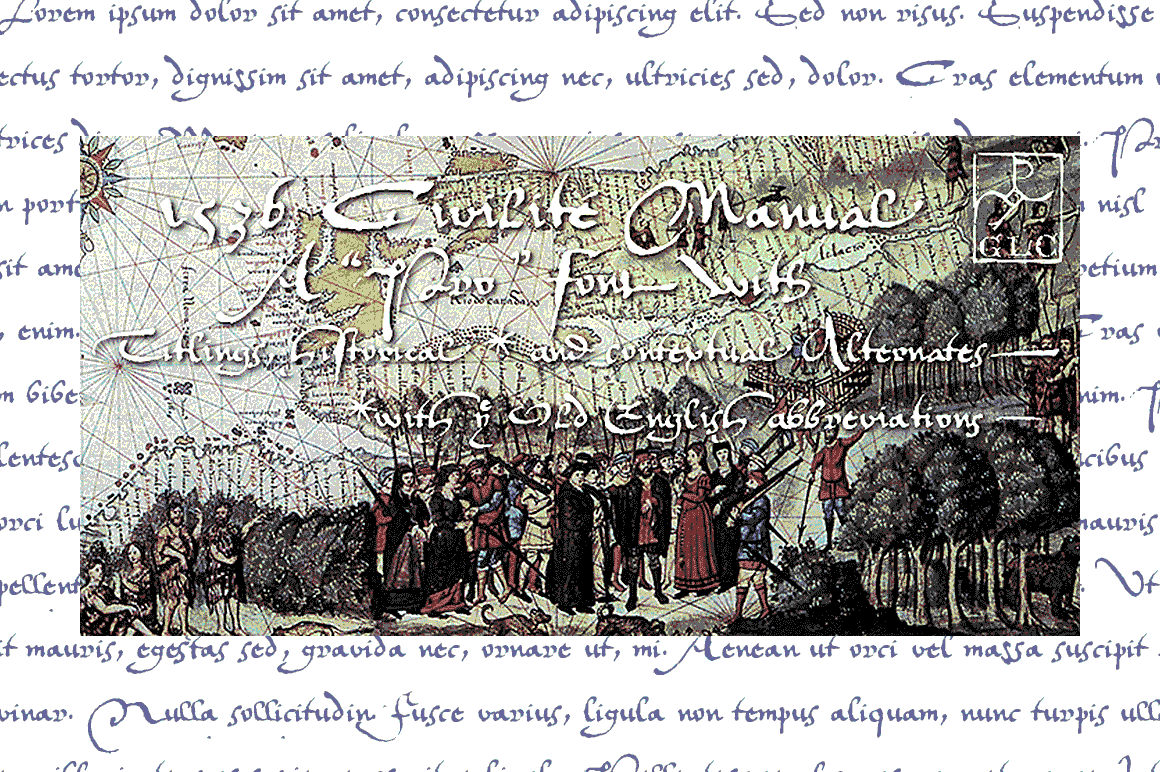 Lorem ipsum dolor sit amet, consectetur adipiscing elit. Sed non risus. Suspendisse
ectus tortor, dignissim sit amet, adipiscing nec, ultricies sed, dolor. Cras elementum
trices
1536 Civilité Manual
GLC
n port
nisl
A “Pro” font with
sit ame
etium
, enim.
Titlings, historical * and contextual Alternates
Cras
m bibe
nim.
*with yͤ Old English abbreviations
lentesc
acibus
orci lu
mauris
pellent
. Ut
it mauris, egestas sed, gravida nec, ornare ut, mi. Aenean ut orci vel massa suscipit
vinar. Nulla sollicitudin. Fusce varius, ligula non tempus aliquam, nunc turpis ull